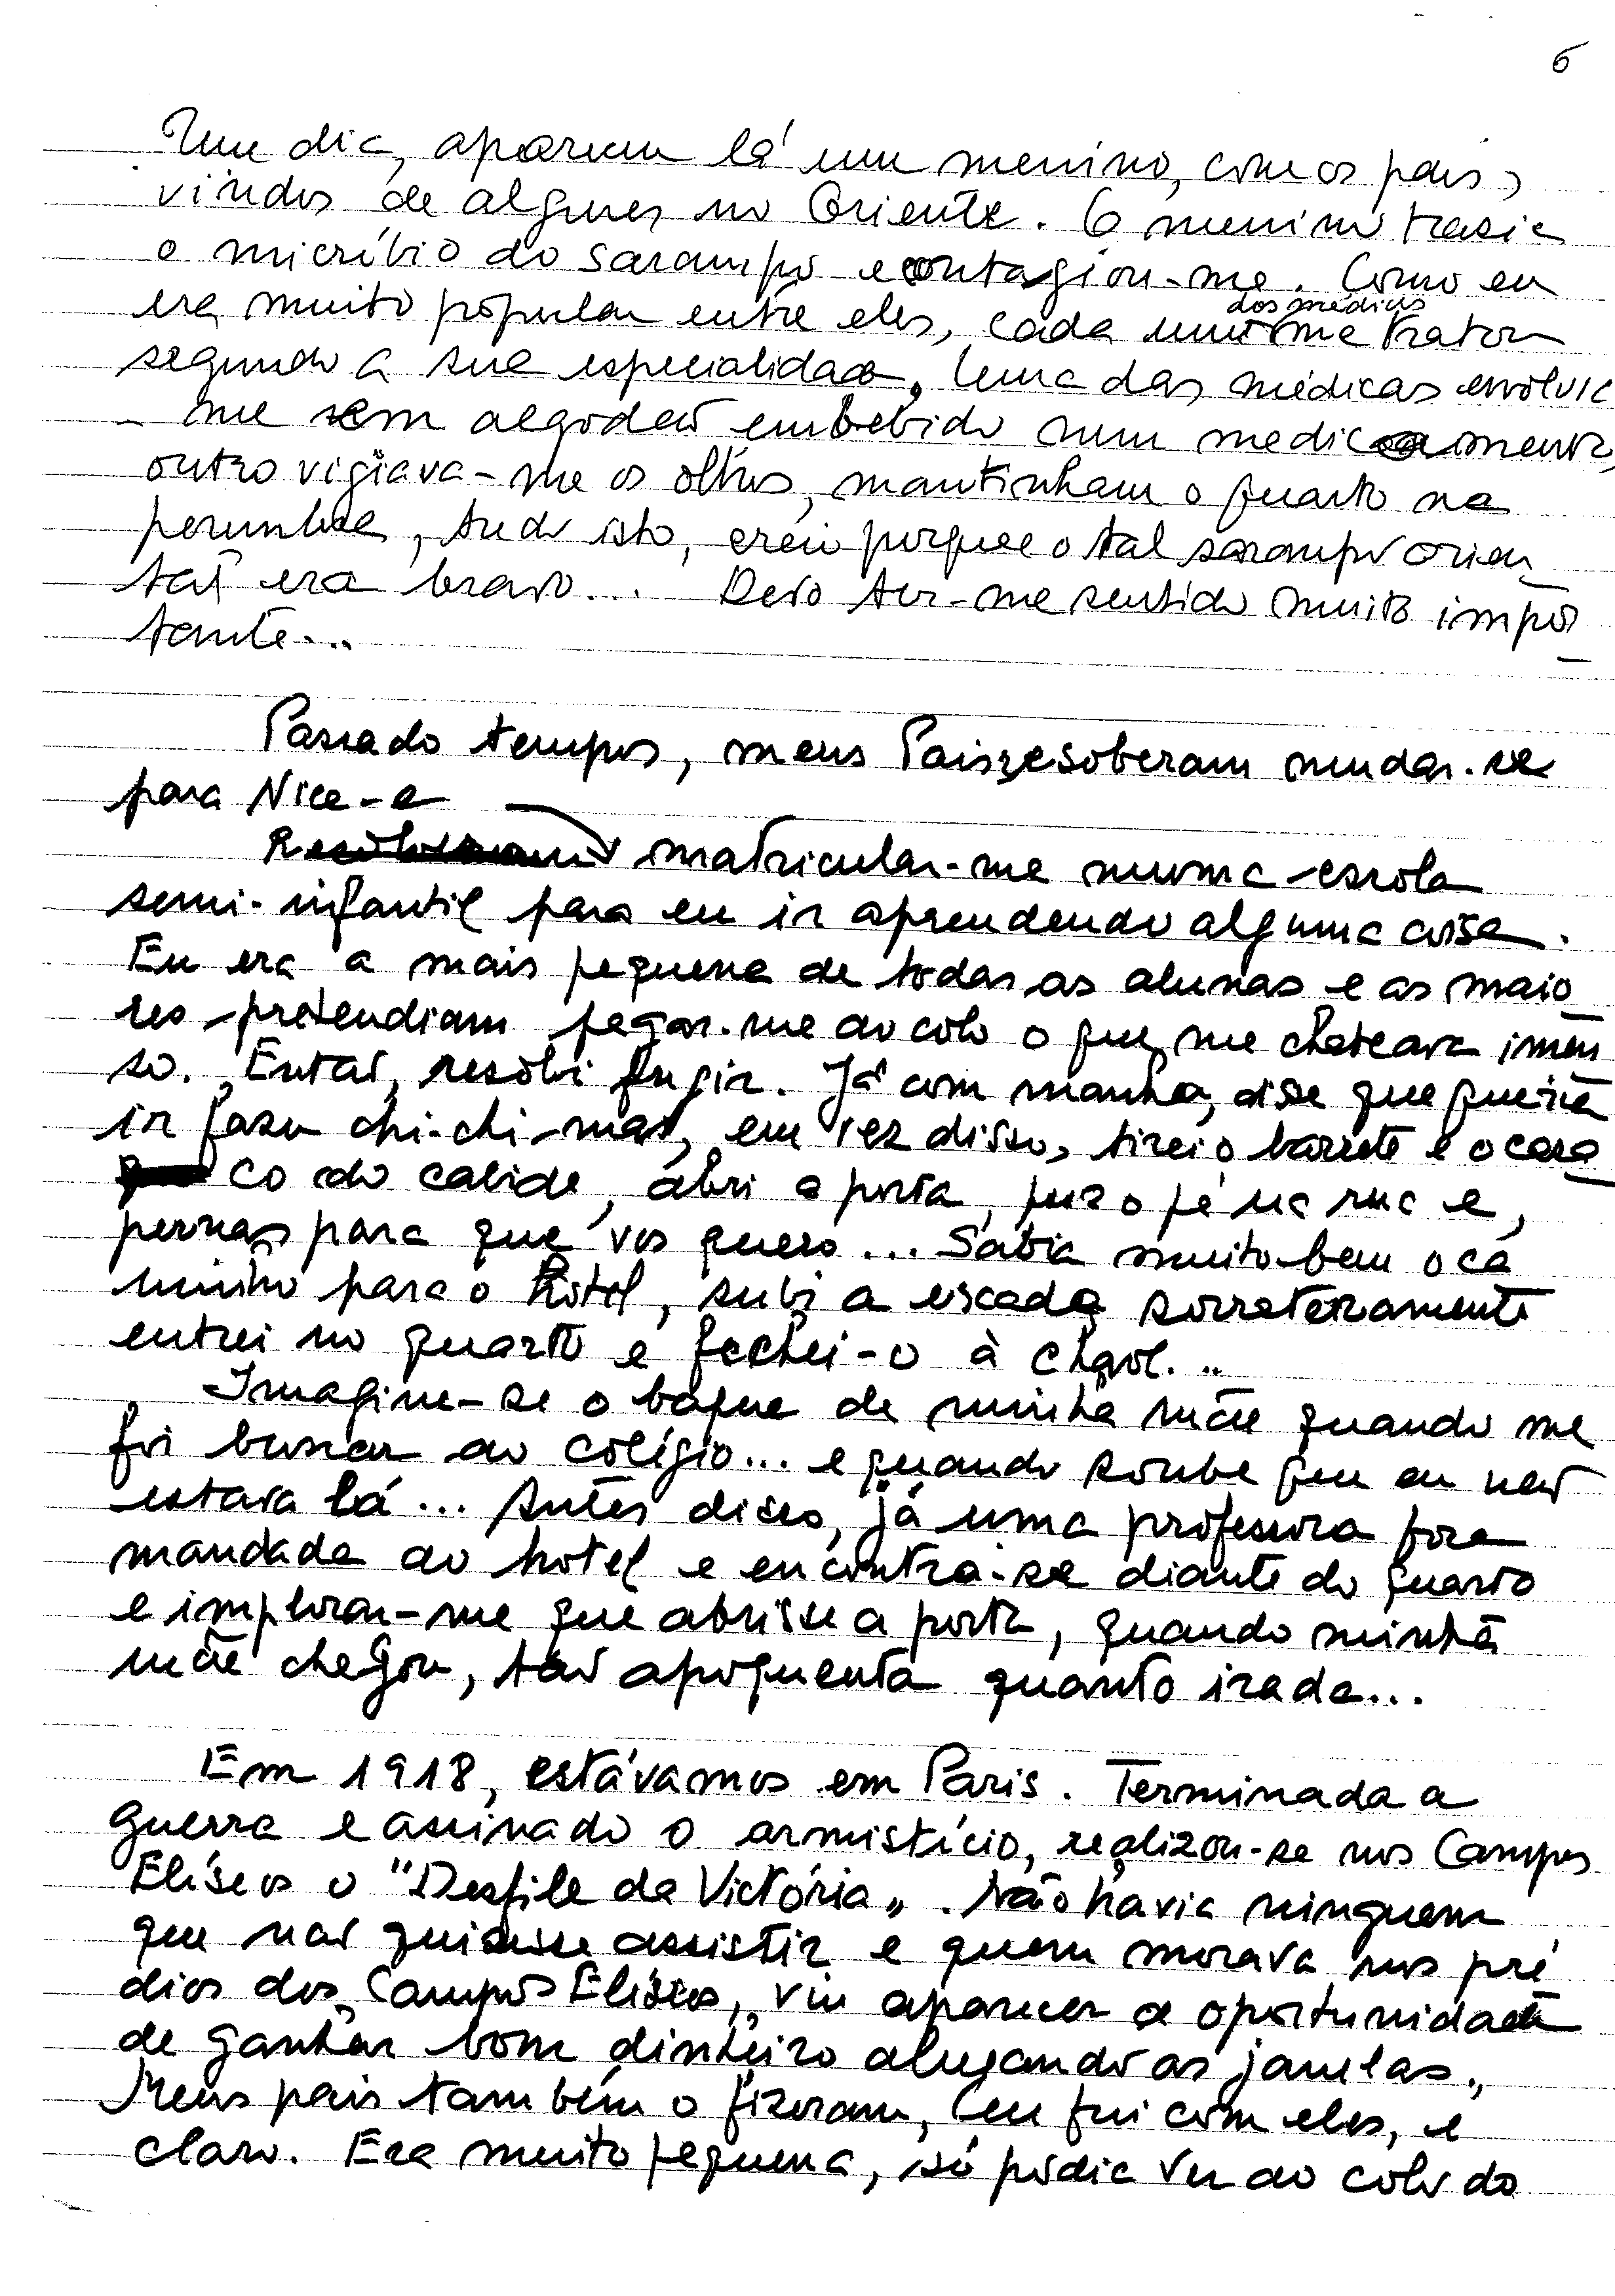 6
Um dia, apareceu lá um menino, com os pais,
vindos de algures no Oriente. O menino trazia
o micróbio do sarampo e contagiou-me. Como eu
era muito popular entre eles, cada um dos médicos me tratou
segundo a sua especialidade. Uma das médicas envolvia
-me em algodão embebido num medicamento,
outro vigiava-me os olhos, mantinham o quarto na
penumbra, tudo isto, creio porque o tal sarampo orien_
tal era bravo... Devo ter-me sentido muito impor_
tante...
Passado tempos, meus Pais resolveram mudar-se
para Nice - e
matricular-me numa escola
semi-infantil para eu ir aprendendo alguma coisa.
Eu era a mais pequena de todas as alunas e as maio_
res pretendiam pegar-me ao colo o que me chateava imen_
so. Então, resolvi fugir. Já com manha, disse que queria
ir fazer chi-chi mas, em vez disso, tirei o barrete e o casa_
co do cabide, abri a porta, puz o pé na rua e,
pernas para que vos quero... Sabia muito bem o ca_
minho para o hotel, subi a escada sorrateiramente
entrei no quarto e fechei-o à chave...
Imagine-se o baque de minha mãe quando me
foi buscar ao colégio... e quando soube que eu não
estava lá... Antes disso, já uma professora fora
mandada ao hotel e encontra-se diante do quarto
e implorar-me que abrisse a porta, quando minha
mãe chegou, tão apoquenta quanto irada...
Em 1918, estávamos em Paris. Terminada a
guerra e assinado o armistício, realizou-se nos Campos
Elíseos o "Desfile da Victória„. Não havia ninguem
que não quizesse assistir e quem morava nos pré_
dios dos Campos Elíseos, viu aparecer a oportunidade
de ganhar bom dinheiro alugando as janelas.
Meus pais também o fizeram, eu fui com eles, é
claro. Era muito pequena, só podia ver ao colo do